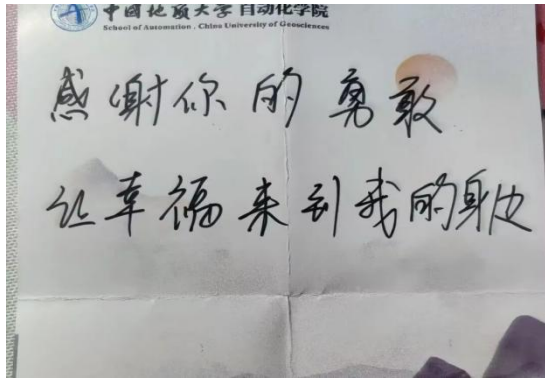 中国地质大学 自动化学院
School of Automation , China University of Geosciences
感谢你的勇敢
让幸福来到我的身边